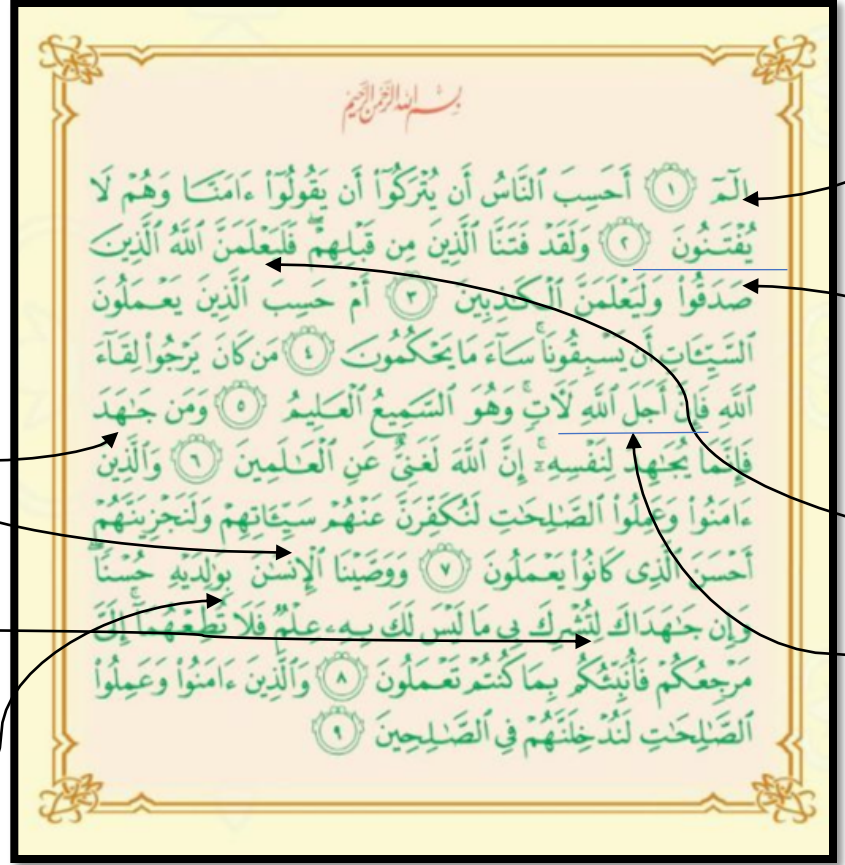 بِسْمِ اللَّهِ الرَّحْمَٰنِ الرَّحِيمِ
الٓمٓ ١ أَحَسِبَ ٱلنَّاسُ أَن يُتْرَكُوٓا۟ أَن يَقُولُوٓا۟ ءَامَنَّا وَهُمْ لَا
يُفْتَنُونَ ٢ وَلَقَدْ فَتَنَّا ٱلَّذِينَ مِن قَبْلِهِمْ ۖ فَلَيَعْلَمَنَّ ٱللَّهُ ٱلَّذِينَ
صَدَقُوا۟ وَلَيَعْلَمَنَّ ٱلْكَـٰذِبِينَ ٣ أَمْ حَسِبَ ٱلَّذِينَ يَعْمَلُونَ
ٱلسَّيِّـَٔاتِ أَن يَسْبِقُونَا ۚ سَآءَ مَا يَحْكُمُونَ ٤ مَن كَانَ يَرْجُوا۟ لِقَآءَ
ٱللَّهِ فَإِنَّ أَجَلَ ٱللَّهِ لَـَٔاتٍ ۚ وَهُوَ ٱلسَّمِيعُ ٱلْعَلِيمُ ٥ وَمَن جَـٰهَدَ
فَإِنَّمَا يُجَـٰهِدُ لِنَفْسِهِۦٓ ۚ إِنَّ ٱللَّهَ لَغَنِىٌّ عَنِ ٱلْعَـٰلَمِينَ ٦ وَٱلَّذِينَ
ءَامَنُوا۟ وَعَمِلُوا۟ ٱلصَّـٰلِحَـٰتِ لَنُكَفِّرَنَّ عَنْهُمْ سَيِّـَٔاتِهِمْ وَلَنَجْزِيَنَّهُمْ
أَحْسَنَ ٱلَّذِى كَانُوا۟ يَعْمَلُونَ ٧ وَوَصَّيْنَا ٱلْإِنسَـٰنَ بِوَٰلِدَيْهِ حُسْنًا ۖ
وَإِن جَـٰهَدَاكَ لِتُشْرِكَ بِى مَا لَيْسَ لَكَ بِهِۦ عِلْمٌ فَلَا تُطِعْهُمَآ ۚ إِلَىَّ
مَرْجِعُكُمْ فَأُنَبِّئُكُم بِمَا كُنتُمْ تَعْمَلُونَ ٨ وَٱلَّذِينَ ءَامَنُوا۟ وَعَمِلُوا۟
ٱلصَّـٰلِحَـٰتِ لَنُدْخِلَنَّهُمْ فِى ٱلصَّـٰلِحِينَ ٩